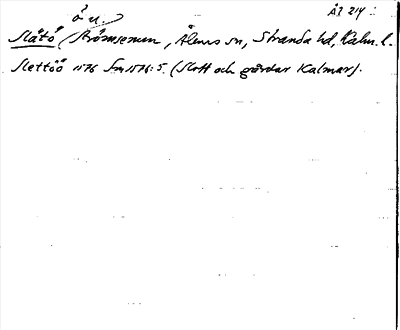 ÅZ 214
ö n.
Slätö, Strömserum, Ålems sn, Stranda hd, Kalm. l.
Slettöö 1576 Sm 1576:5. (Slott och gårdar Kalmar).